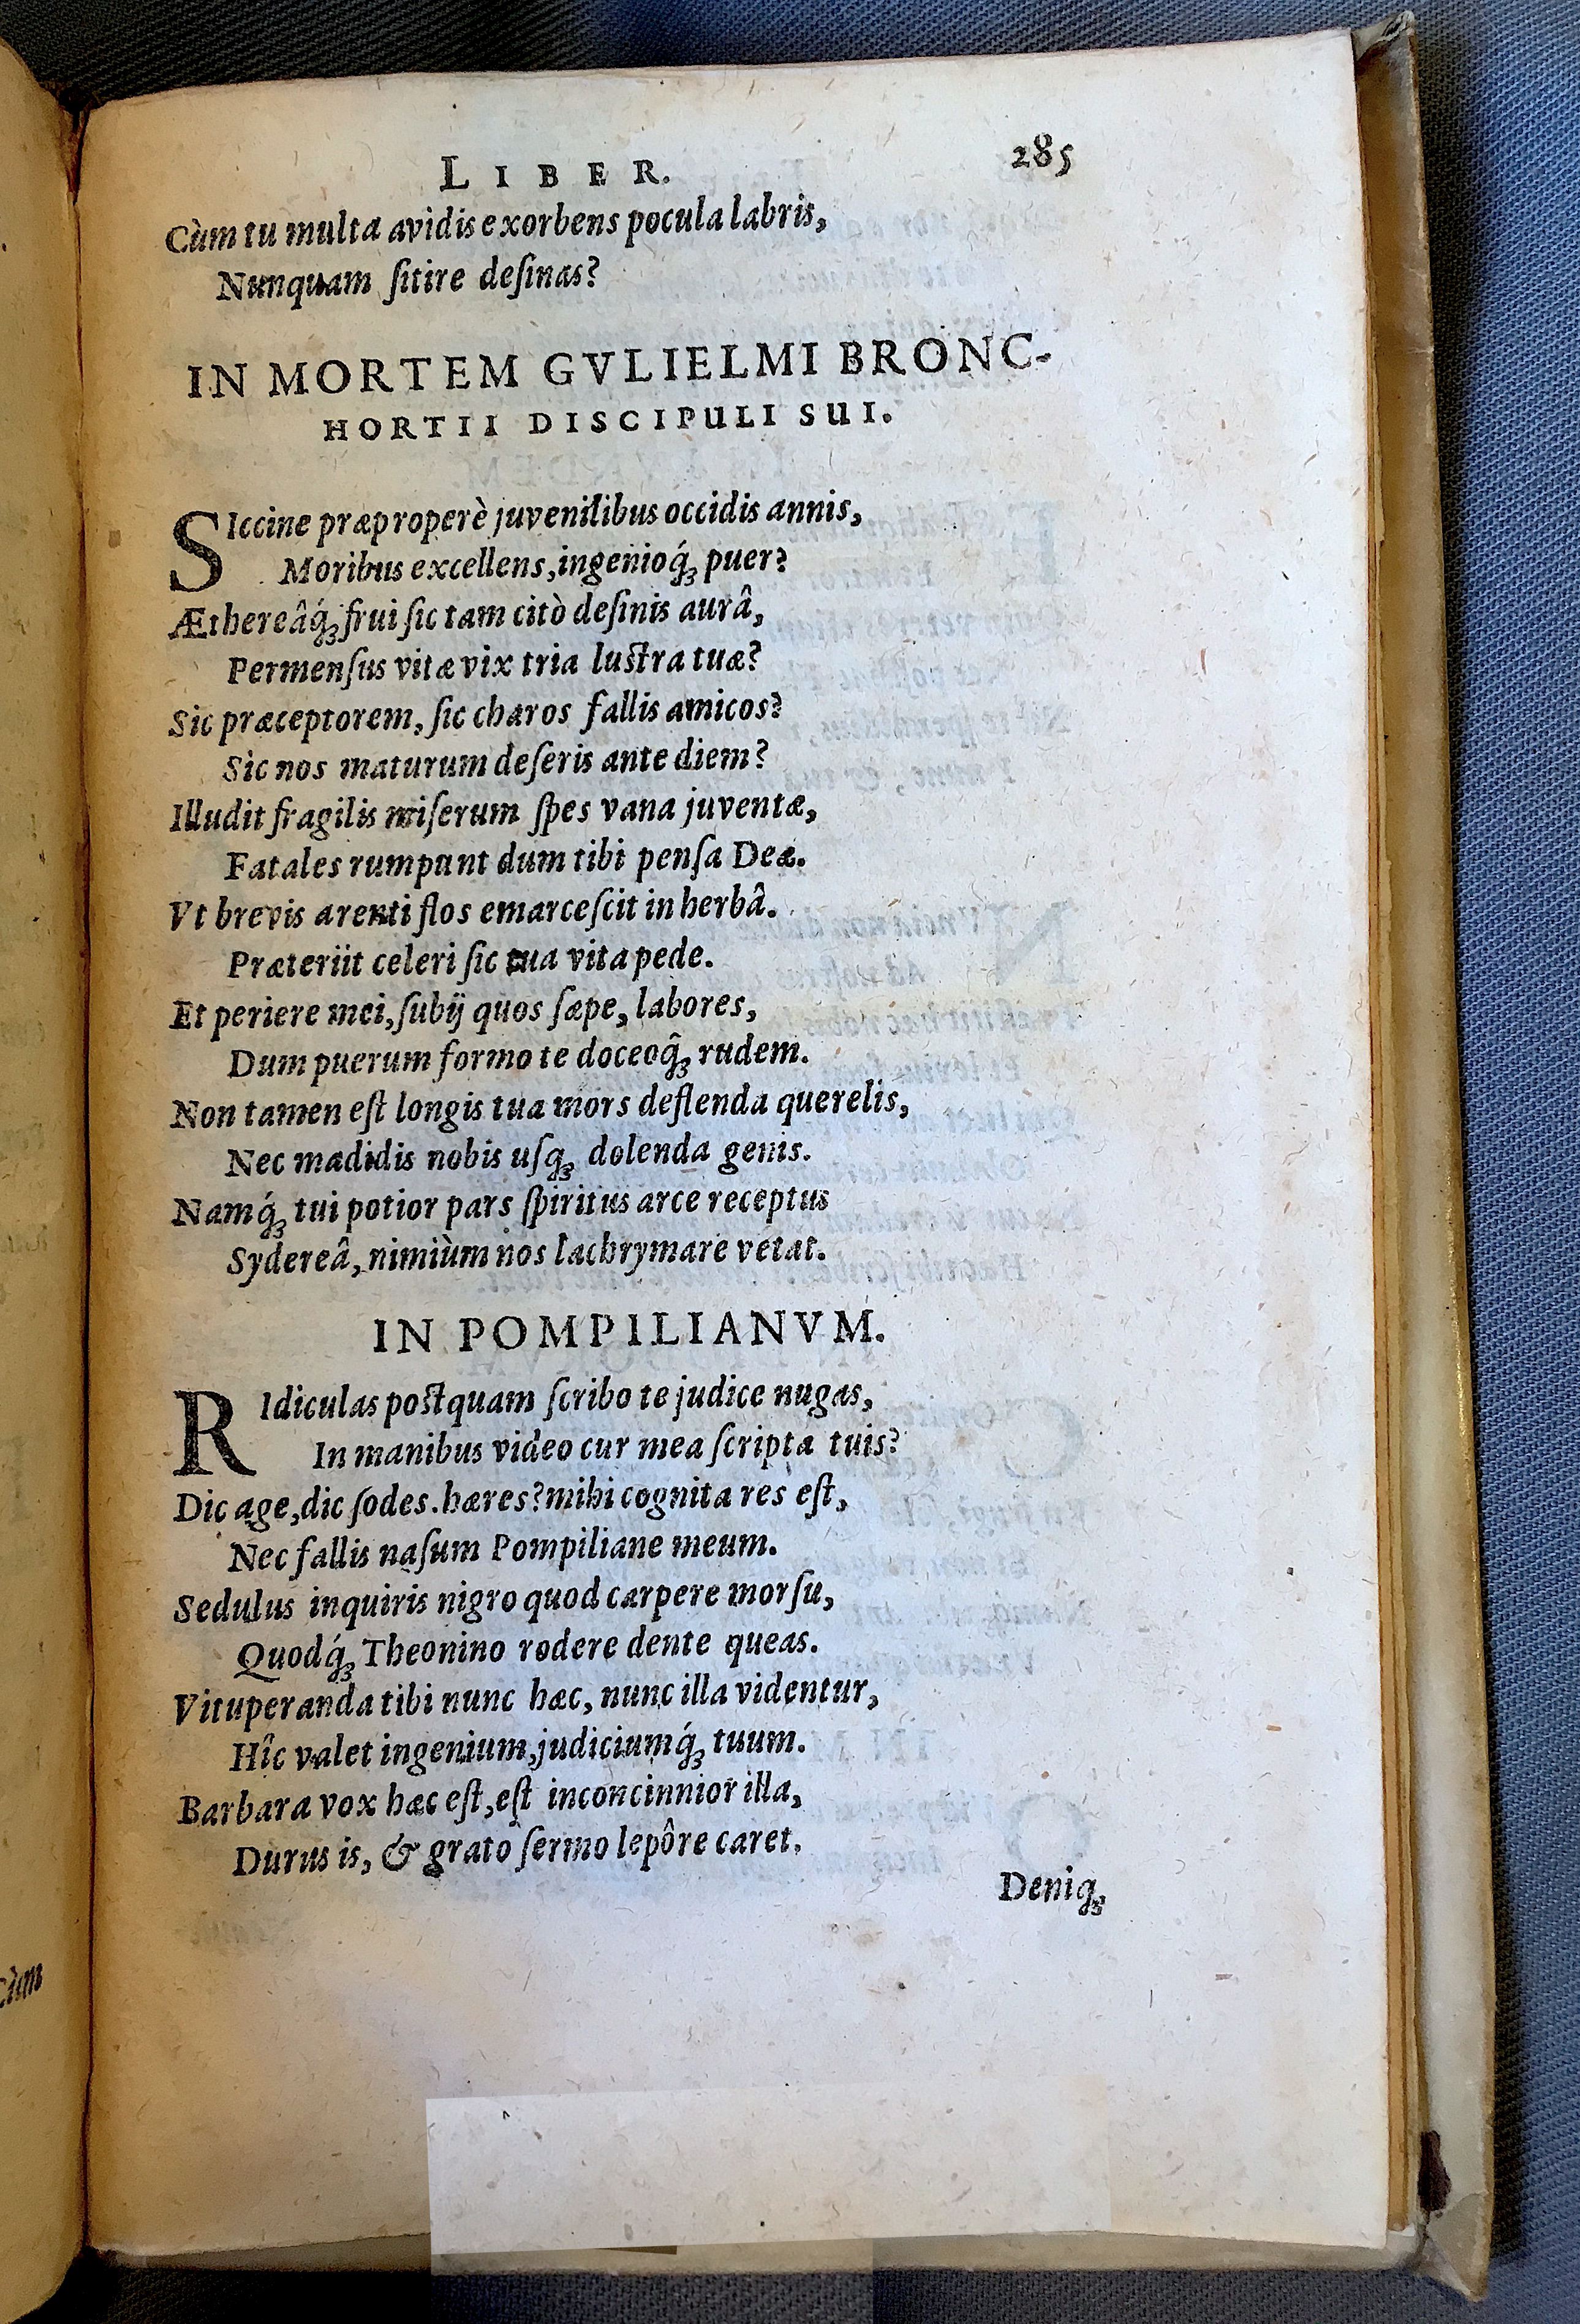 LIBER. 285
Cùm tu multa avidis exorbens pocula labris,
Nunquam ſitire deſinas?
IN MORTEM GVLIELMI BRONC-
HORTII DISCIPULI SUI.
SIccine præproperè juvenilibus occidis annis,
Moribus excellens, ingenioq́ꝫ puer?
Æthereâq́ꝫ frui ſic tam citò deſinis aurâ,
Permenſus vitæ vix tria luſtra tuæ?
Sic præceptorem, ſic charos fallis amicos?
Sic nos maturum deſeris ante diem?
Illudit fragilis miſerum ſpes vana juventæ,
Fatales rumpunt dum tibi penſa Deæ.
Vt brevis arenti flos emarceſcit in herbâ.
Præteriit celeri ſic tua vita pede.
Et periere mei, ſubij quos ſæpe, labores,
Dum puerum formo te doceoq̂ꝫ rudem.
Non tamen eſt longis tua mors deflenda querelis,
Nec madidis nobis uſqꝫ dolenda genis.
Namq́ꝫ tui potior pars ſpiritus arce receptus
Sydereâ, nimiùm nos lachrymare vetat.
IN POMPILIANVM.
RIdiculas poſtquam ſcribo te judice nugas,
In manibus video cur mea ſcripta tuis?
Dic age, dic ſodes. hæres? mihi cognita res eſt,
Nec fallis naſum Pompiliane meum.
Sedulus inquiris nigro quod carpere morſu,
Quodq́ꝫ Theonino rodere dente queas.
Vituperanda tibi nunc hæc, nunc illa videntur,
Hîc valet ingenium, judiciumq́ꝫ tuum.
Barbara vox hæc eſt, eſt inconcinnior illa,
Durus is, & grato ſermo lepôre caret.
Deniqꝫ
cùm